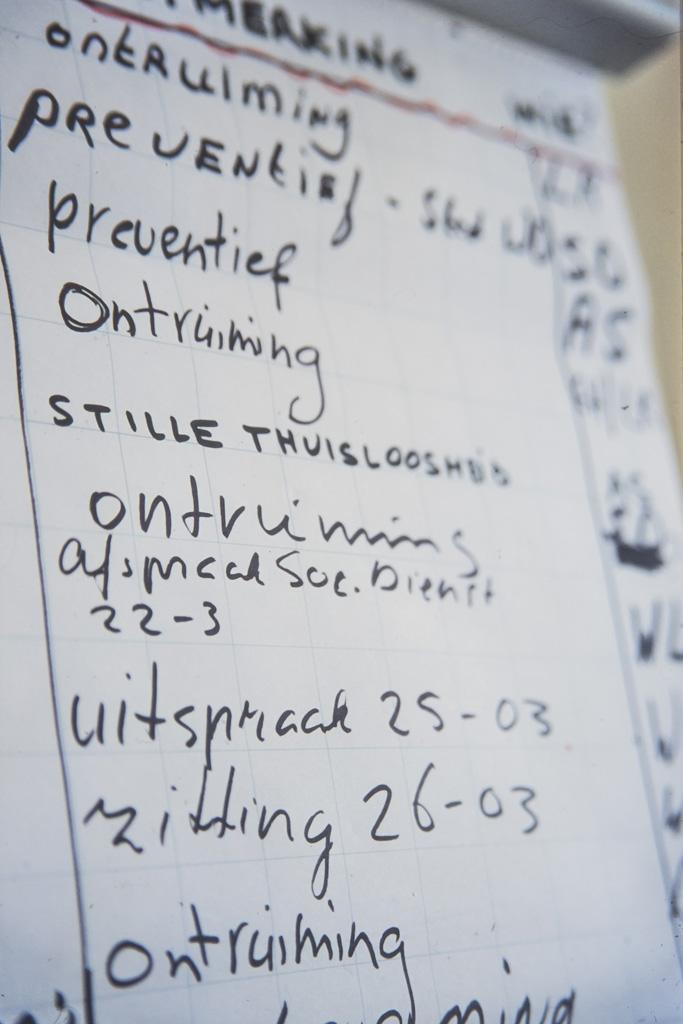 ontruiming
PREVENTIEf -
SO
preventief
AS
Ontruiming
STILLE THUISLOOSHEID
ontruiming
afspraak Soc. Dienst
22-3
WL
uitspraak 25-03
zitting 26-03
ontruiming